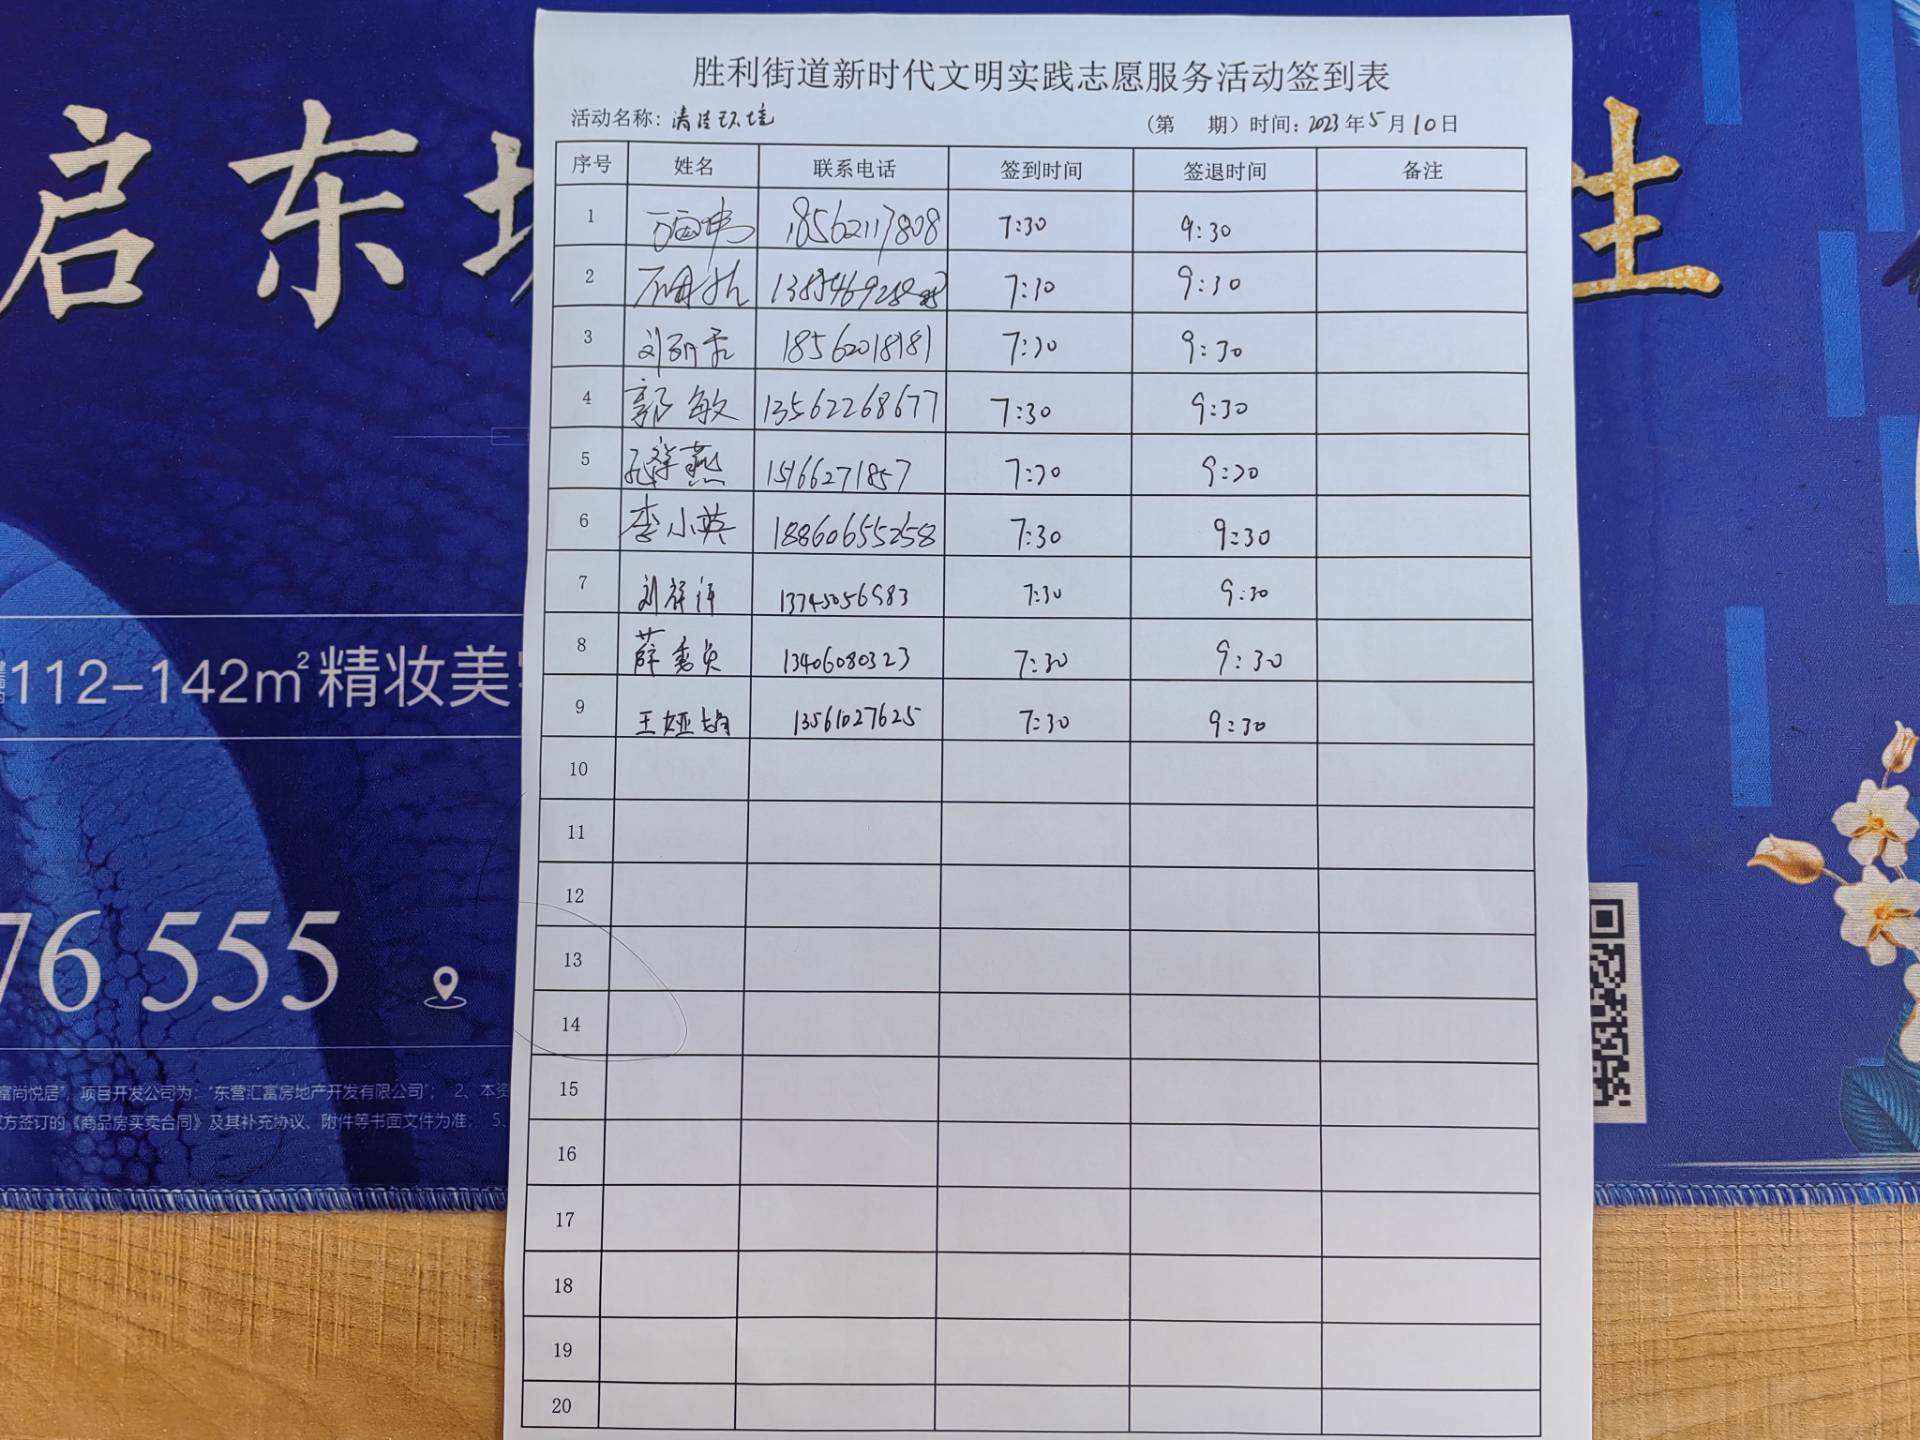 胜利街道新时代文明实践志愿服务活动签到表
活动名称：清洁环境 （第 期）时间：2023年5月10日
序号 姓名 联系电话 签到时间 签退时间 备注
1 18562117808 7:30 9:30
2 7:30 9:30
3 18562018181 7:30 9:30
4 郭敏 13562268677 7:30 9:30
5 燕 15166271857 7:30 9:30
6 李小英 18860655258 7:30 9:30
7 刘 7:30 9:30
8 薛秀贞 13406080323 7:30 9:30
9 王娅娟 13561027625 7:30 9:30
10
11
12
13
14
15
16
17
18
19
20
启东
生
112-142m²精妆美
76 555
富尚悦居”，项目开发公司为：“东营汇富房地产开发有限公司”； 2、本资
方签订的《商品房买卖合同》及其补充协议、附件等书面文件为准； 5、